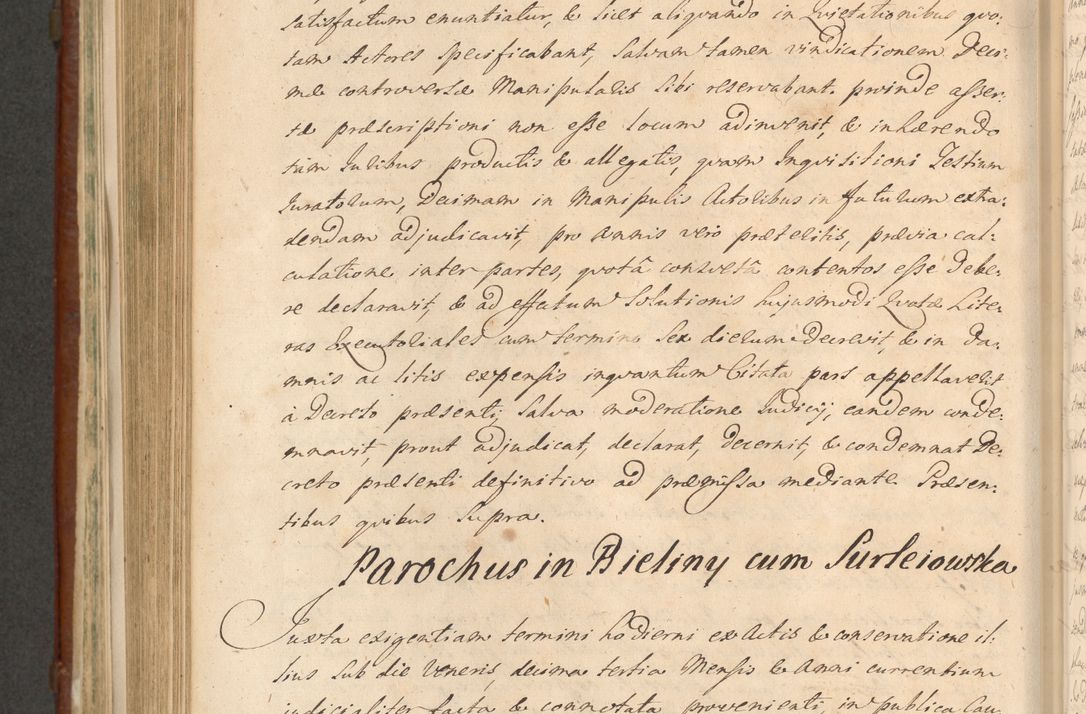 satisfactum enuntiatur, & licet aliquando in Quietationibus quo:
tam Actores specificabant, salvam tamen vindicationem Deci:
mæ controversæ Manipulalis sibi reservabant. proinde asser:
tæ præscriptioni non esse locum adinvenit, & inhærendo
tam Juribus productis & allegatis, quam Inquisitioni Testium
Juratorum, Decimam in Manipulis Actoribus in futurum extra:
dendam adjudicavit, pro Annis vero præteritis, prævia cal:
culatione inter partes, quotâ consvetâ contentos esse debe:
re declaravit, & ad effectum solutionis hujusmodi Quotæ Lite:
ras Executoriales cum termino sex dierum decrevit, & in da:
mnis ac litis expensis inquantum Citata pars appellaverit
à Decreto præsenti, salva moderatione Judicij, eandem conde:
mnavit, prout adjudicat, declarat, decernit, & condemnat De:
creto præsenti definitivo ad præmissa mediante. Præsen:
tibus quibus supra.
Parochus in Bieliny cum Surleiowska
Juxta exigentiam termini hodierni ex Actis & conservatione il:
lius sub die Veneris, decima tertia Mensis & Anni currentium
judicialiter facta & connotata provenienti, in publica Cau